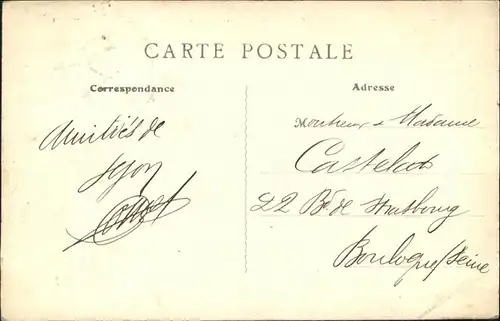 CARTE POSTALE
Correspondance
Amitiés de
Lyon
Adresse
Monsieur & Madame
22 Bd de Strasbourg
Boulogne/Seine